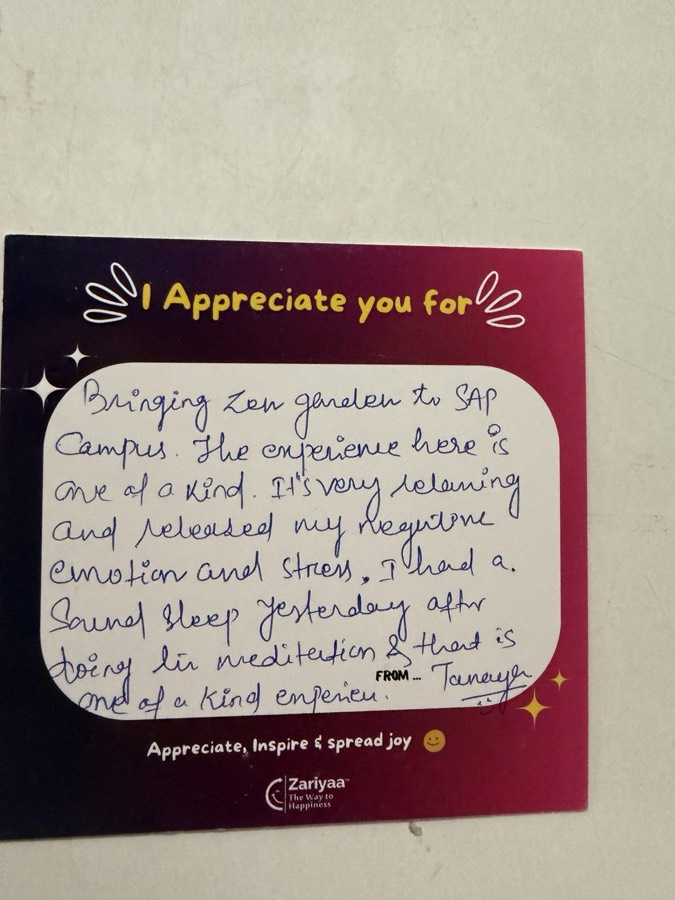 I Appreciate you for
Bringing Zen garden to SAP
Campus. The experience here is
one of a kind. It's very relaxing
and released my negative
emotion and stress, I had a.
Sound sleep yesterday after
doing meditation & that is
one of a kind
FROM... Tanaya
Appreciate, Inspire & spread joy
Zariyaa™
The Way to
Happiness